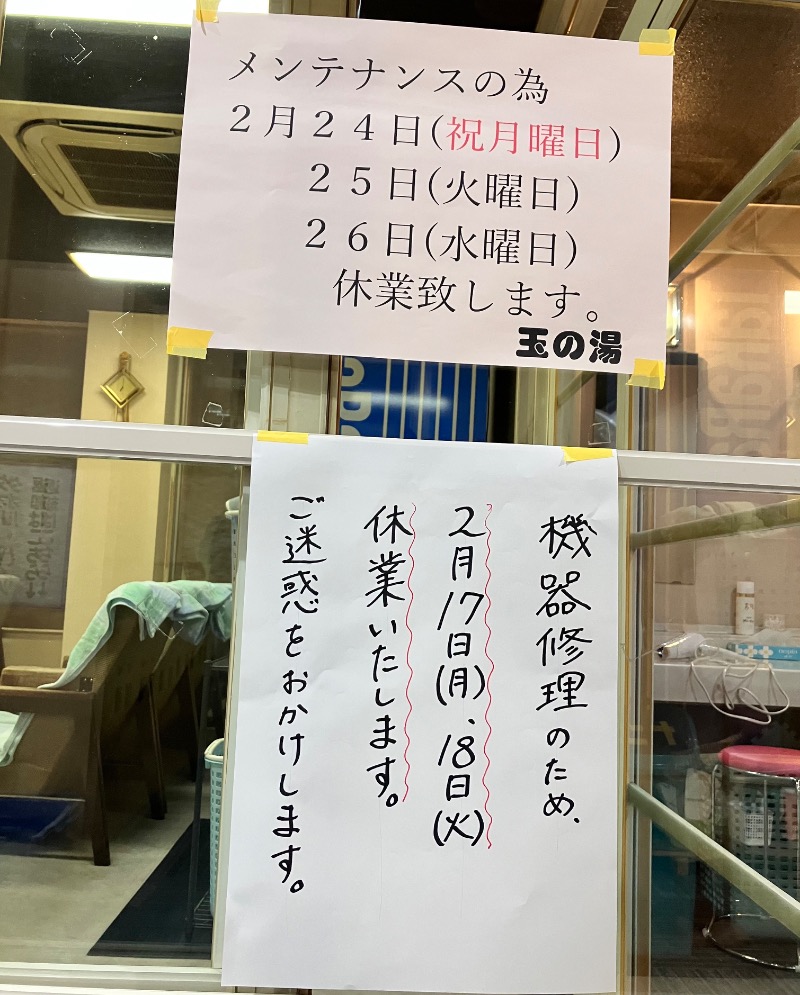 メンテナンスの為
２月２４日(祝月曜日)
２５日(火曜日)
２６日(水曜日)
休業致します。
玉の湯
機器修理のため、
2月17日(月)、18日(火)
休業いたします。
ご迷惑をおかけします。